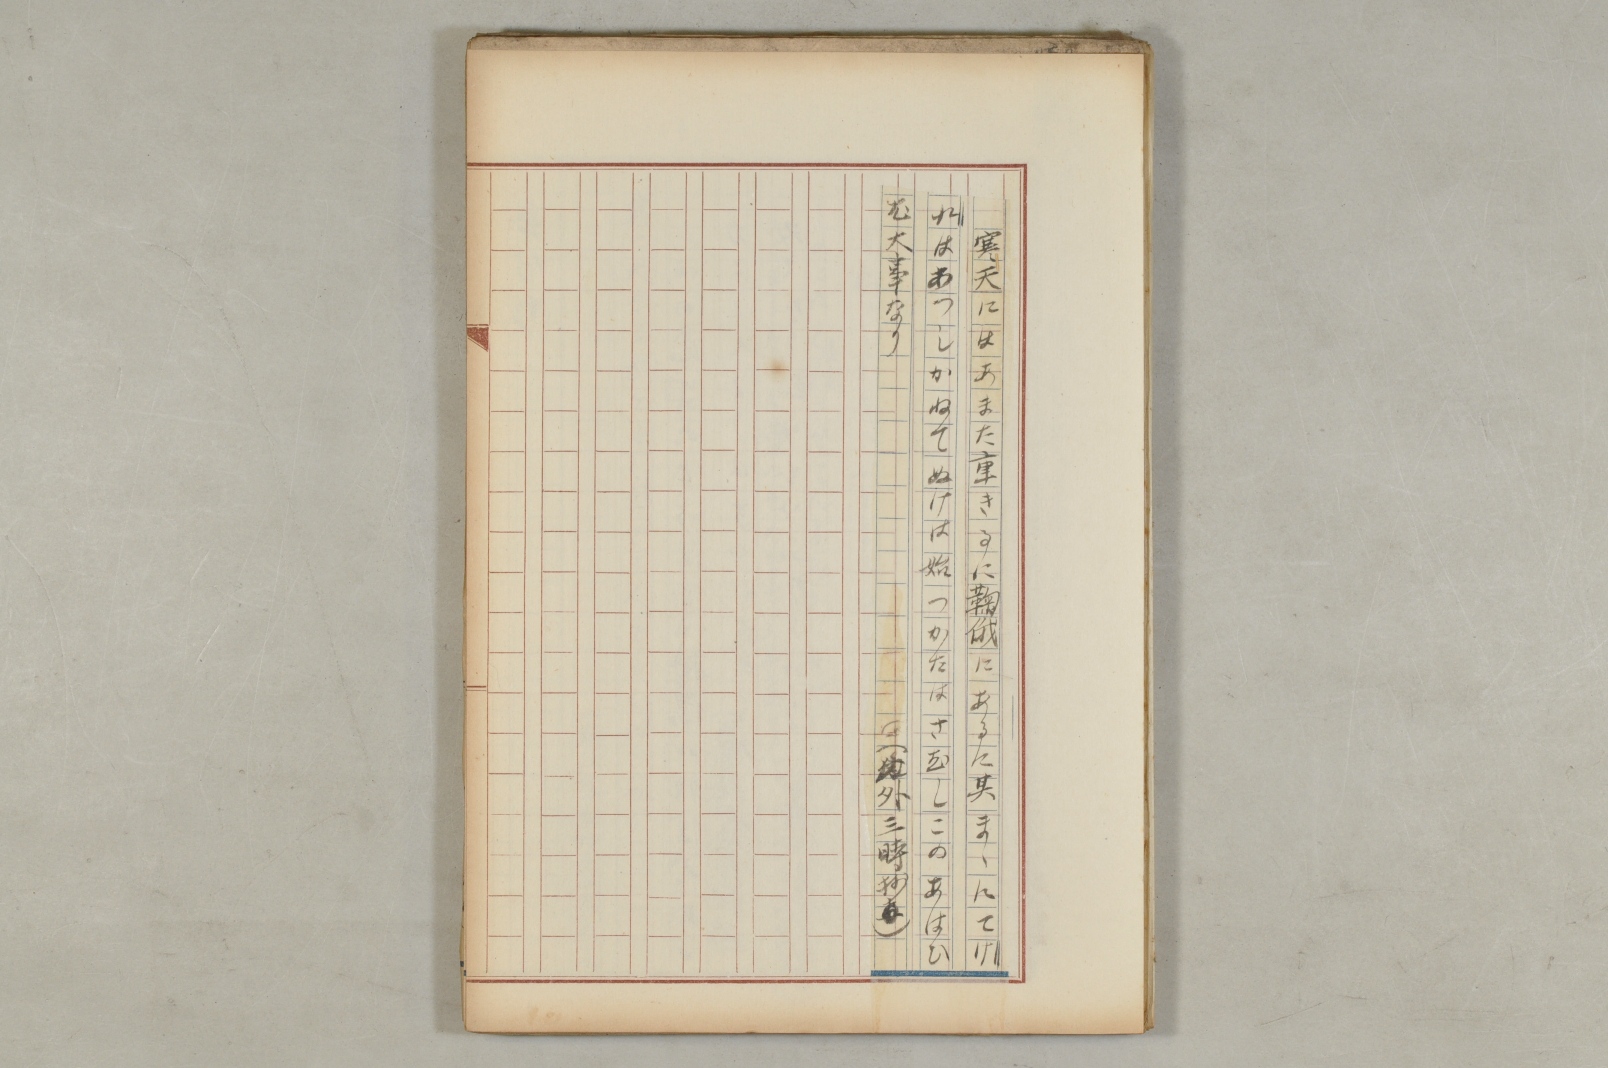 寒天にはあまた重きるに鞠俄にあるに其まゝにてけ
れはあつしかねてぬけは始つかたはさむしこのあはひ
尤大事なり
外三時抄